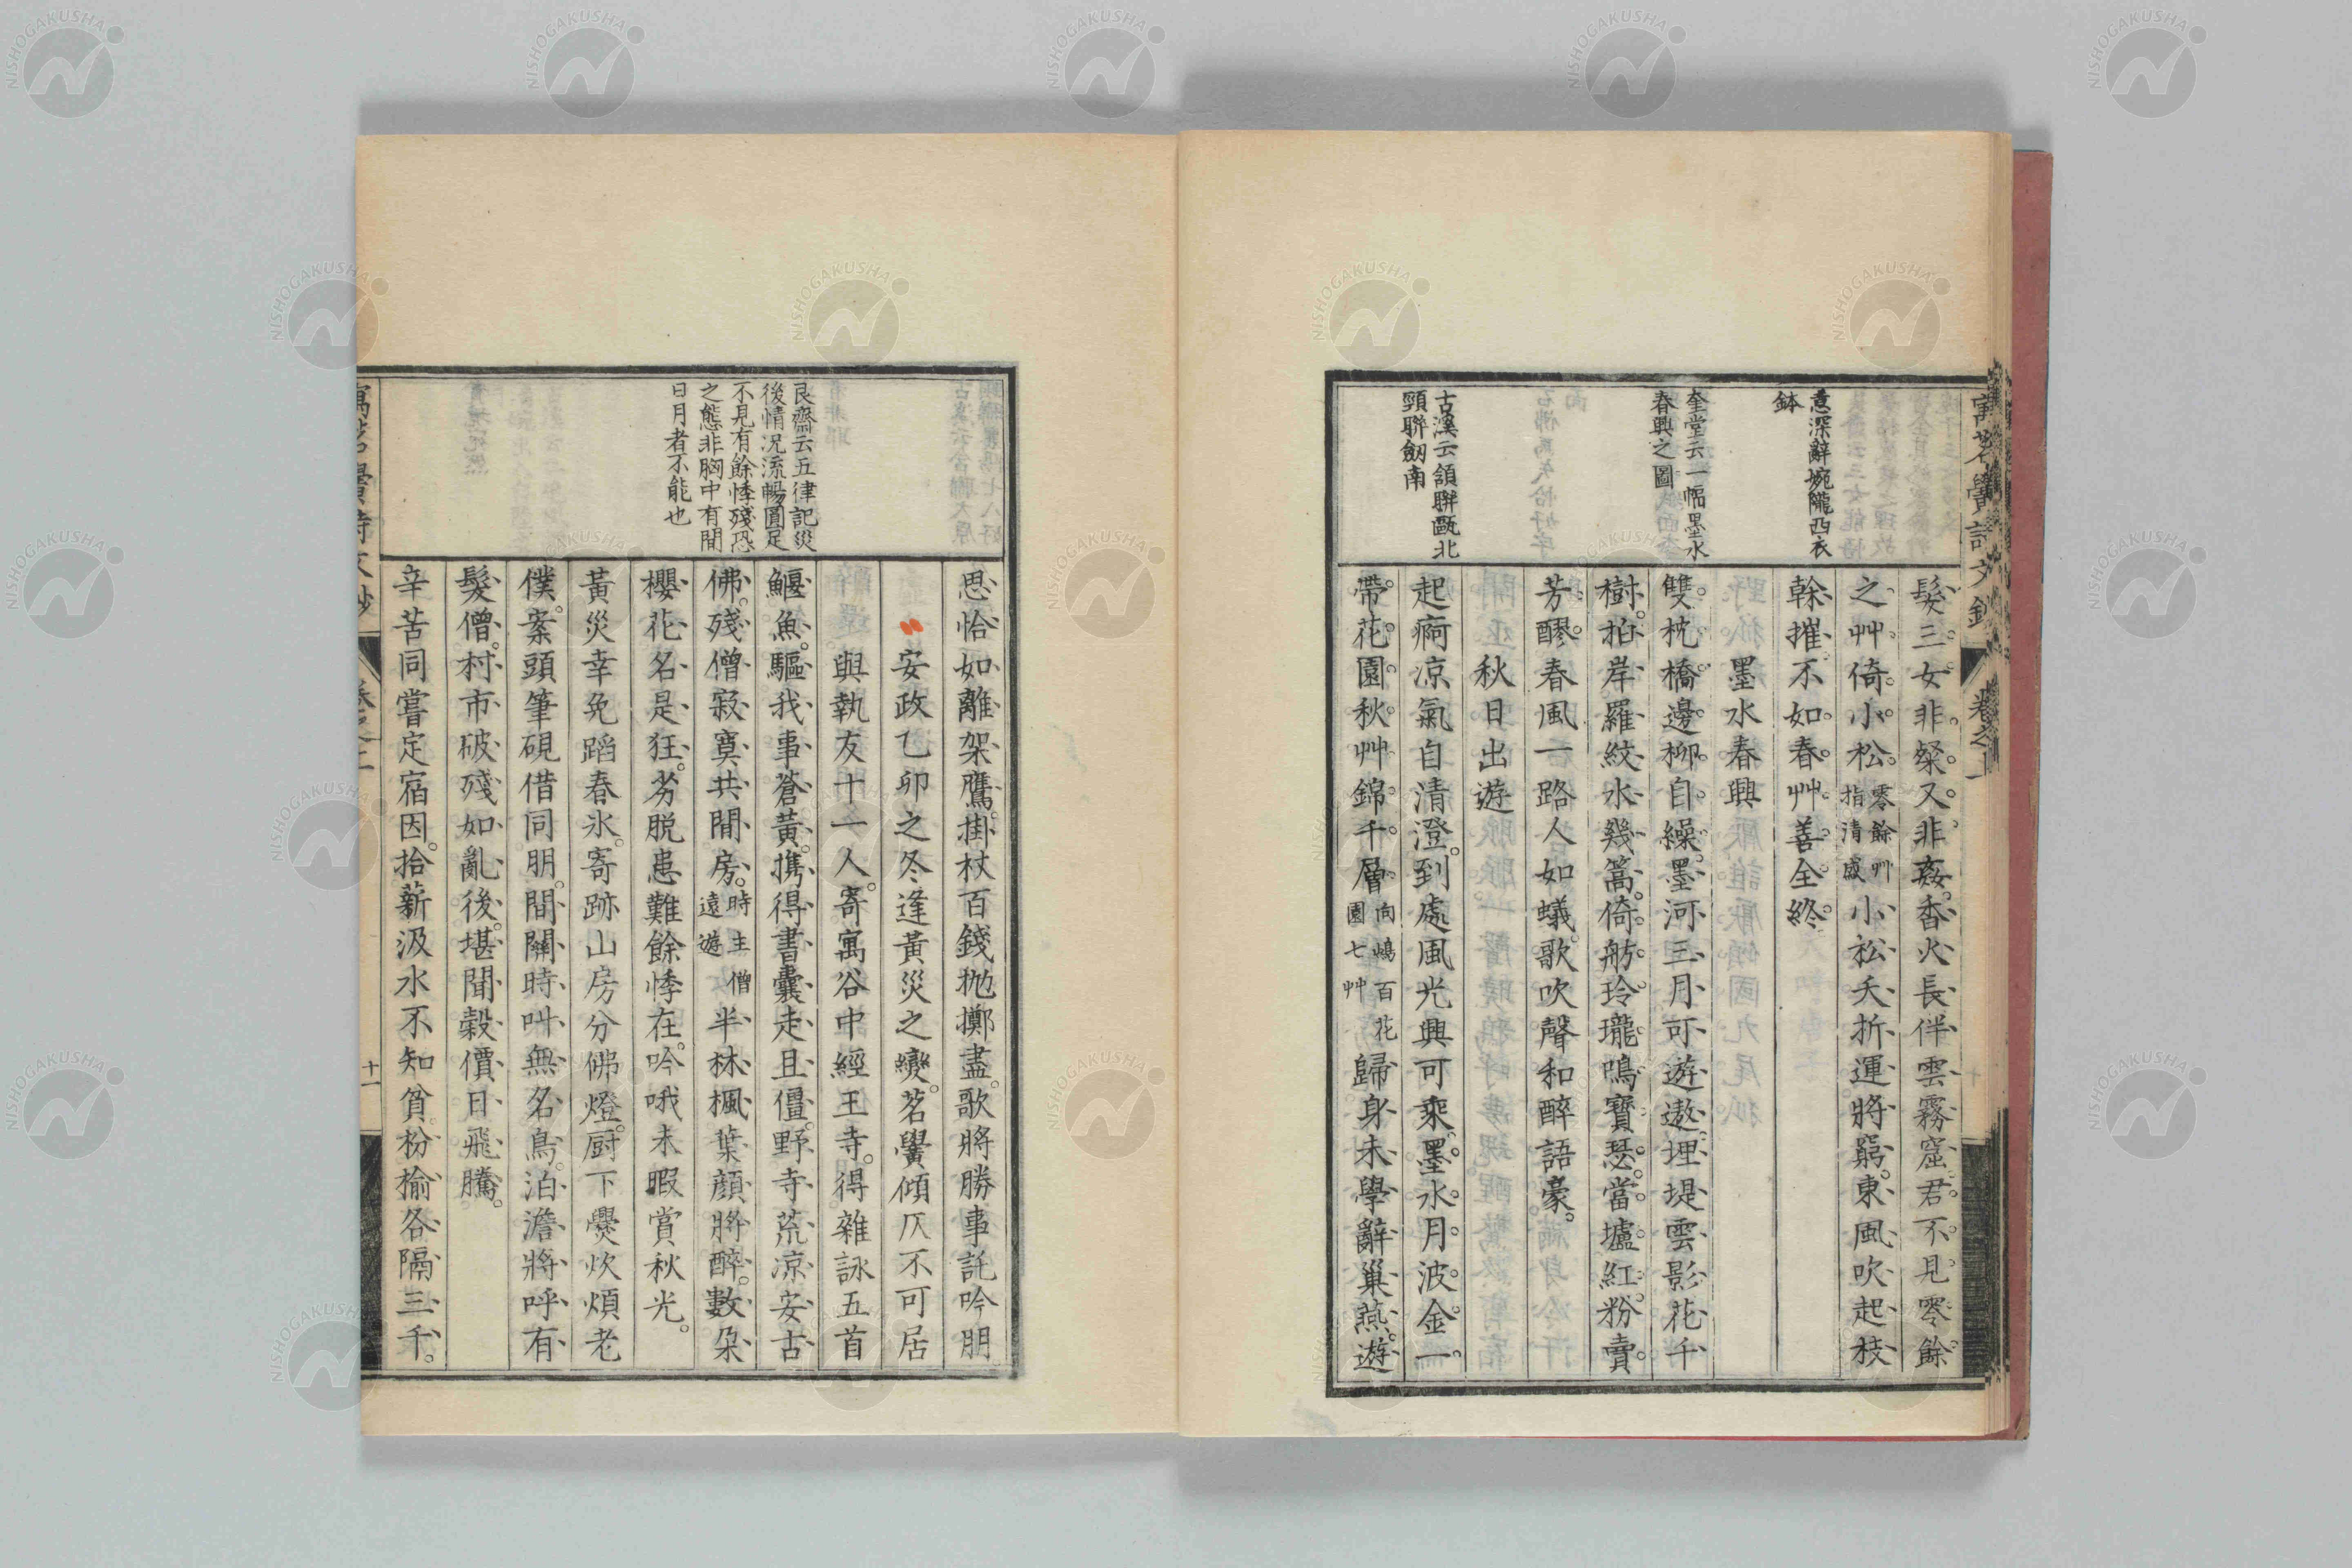 意深辭婉隴西衣
鉢
奎堂云一幅墨水
春興之圖
古溪云頷聯甌北
頸聯劔南
髮三女非粲又非姦香火長伴雲霧窟君不見零餘
之艸倚小松零餘艸指清盛小松夭折運將窮東風吹起枝
幹摧不如春艸善全終
墨水春興
雙枕橋邊柳自繰墨河三月可遊遨埋堤雲影花千
樹拍岸羅紋水幾篙倚舫玲瓏鳴寶瑟當壚紅粉賣
芳醪春風一路人如蟻歌吹聲和醉語豪
秋日出遊
起痾凉氣自清澄到處風光興可乘墨水月波金一
帶花園秋艸錦千層向嶋百花園七艸歸身未學辭巢燕遊
寓茗黌詩文鈔
卷之一
艮齋云五律記災
後情況流暢圓足
不見有餘悸殘恐
之態非胸中有閒
日月者不能也
思恰如離架鷹掛杖百錢抛擲盡歌將勝事託吟朋
安政乙卯之冬逢黃災之變茗黌傾仄不可居
與執友十一人寄寓谷中經王寺得雜詠五首
鰋魚驅我事蒼黃携得書囊走且僵野寺荒凉安古
佛殘僧寂寞共閒房時主僧遠遊半林楓葉顏將醉數朶
櫻花名是狂芴脱患難餘悸在吟哦未暇賞秋光
黃災幸免蹈春氷寄跡山房分佛燈厨下爨炊煩老
僕案頭筆硯借同朋間關時叫無名鳥泊澹將呼有
髮僧村市破殘如亂後堪聞穀價日飛騰
辛苦同嘗定宿因拾薪汲水不知貧枌榆各隔三千
十一
NISHOGAKUSHA